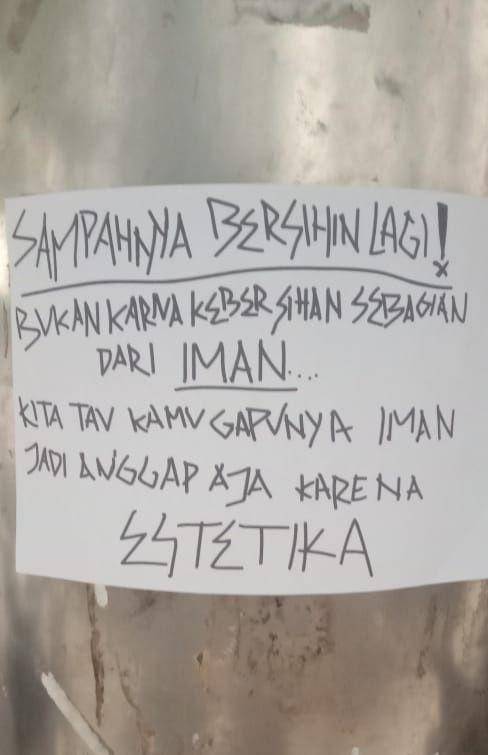 SAMPAHNYA BERSIHIN LAGI!
BUKAN KARNA KEBERSIHAN SEBAGIAN
DARI IMAN....
KITA TAU KAMU GAPUNYA IMAN
JADI ANGGAP AJA KARENA
ESTETIKA